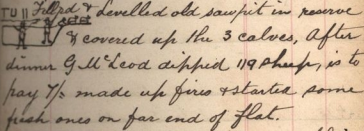 TU 11 Filled & Levelled old sawpit in reserve
& covered up the 3 calves, After
dinner G McLeod dipped 119 sheep, is to
pay 7/- made up fires & started some
fresh ones on far end of flat.